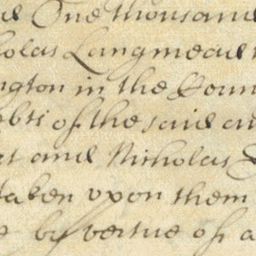 One thousand
holas Langmead
ngton in the Coun
ebts of the said an
rt and Nicholas
taken upon them
by vertue of a